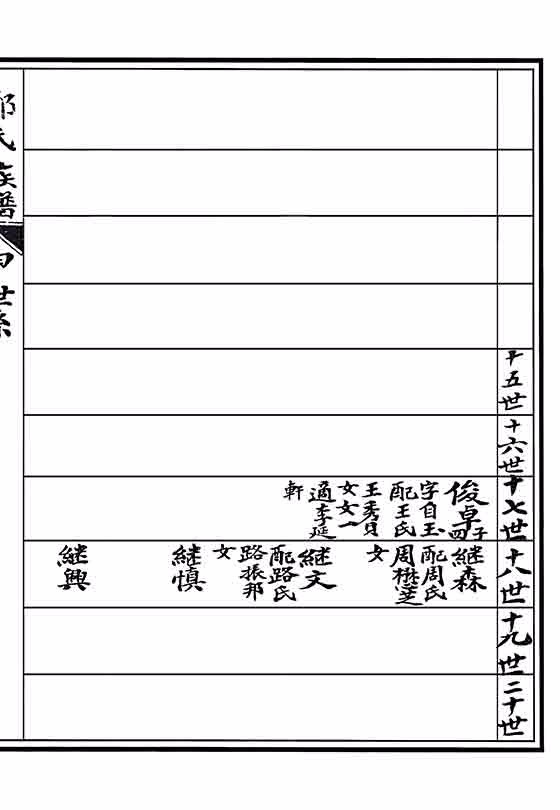 十五世
十六世
十七世
十八世
十九世
二十世
俊卓
子四
字自玉
配王氏
王秀貝
女女一
適李延
軒
継森
配周氏
周楙芝
女
継文
配路氏
路振邦
女
継慎
継興
氏族譜
世系